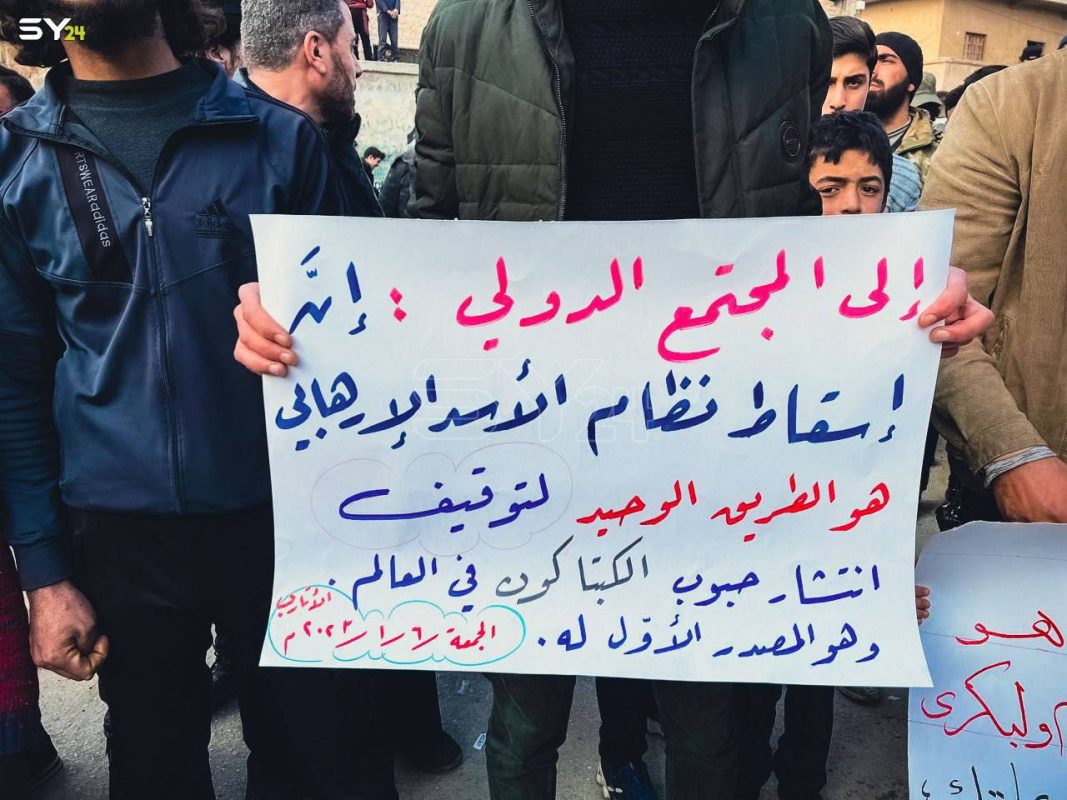 SY24
SPORTSWEAR adidas
adidas
إلى المجتمع الدولي : إنَّ
إسقاط نظام الأسد الإرهابي
هو الطريق الوحيد لتوقيف
انتشار حبوب الكبتاكون في العالم.
وهو المصدر الأوّل له.
الأتارب
الجمعة ٢٠٢٣/١/٦ م
هو
ولبكرى